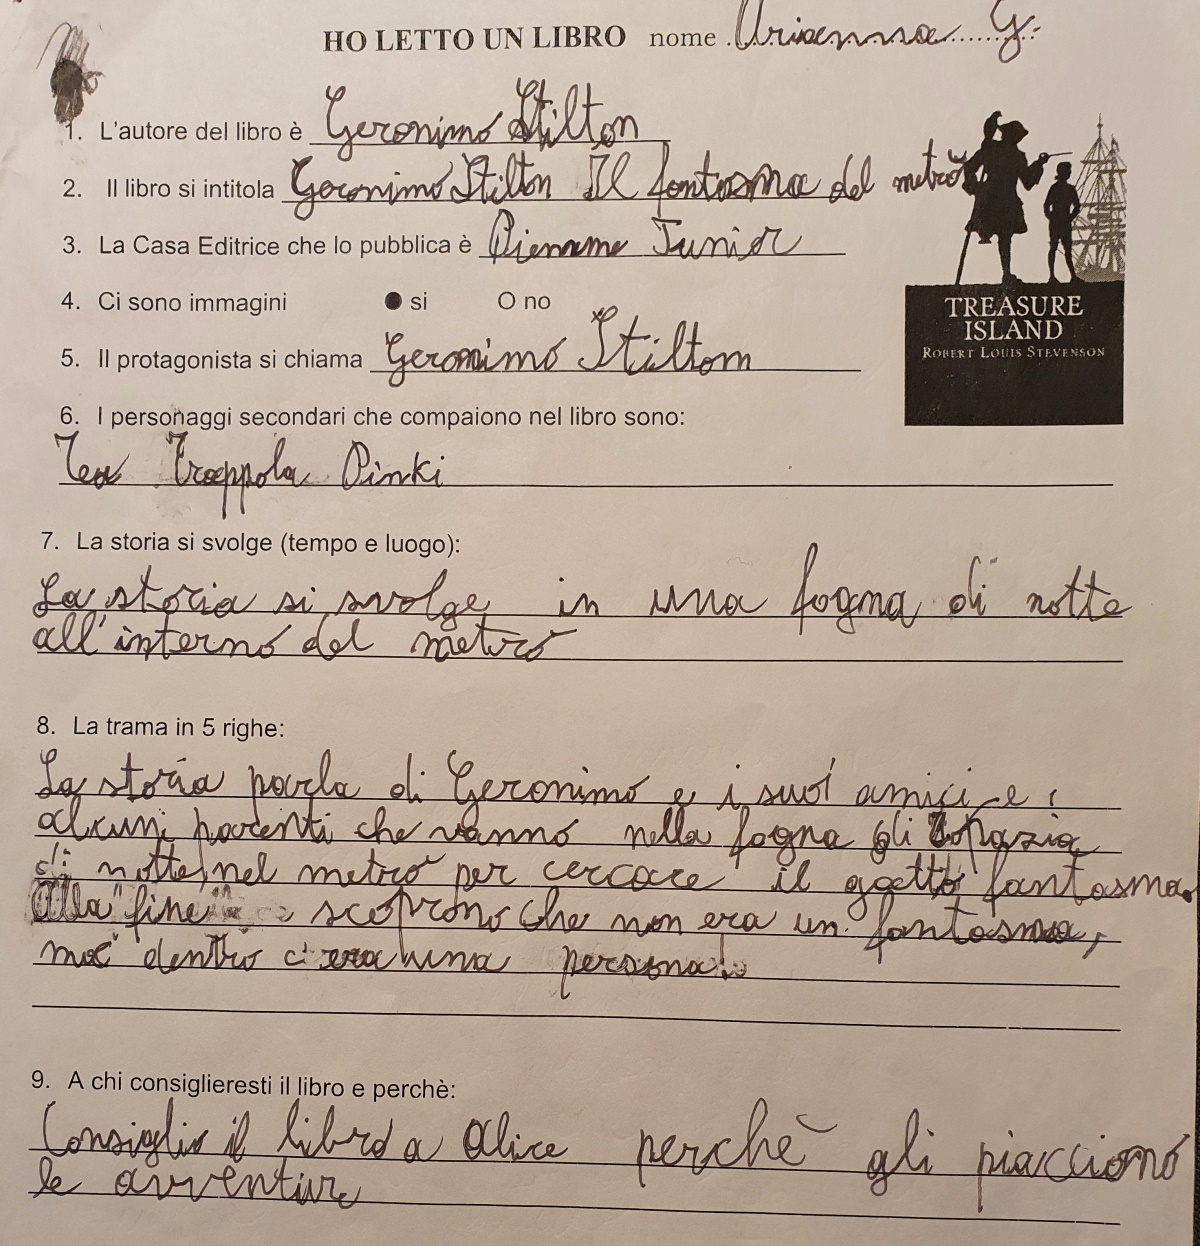 HO LETTO UN LIBRO nome Arianna G.
1. L'autore del libro è Geronimo Stilton
2. Il libro si intitola Geronimo Stilton Il fantasma del metrò
3. La Casa Editrice che lo pubblica è Piemme Junior
4. Ci sono immagini ● si O no
5. Il protagonista si chiama Geronimo Stiltom
TREASURE
ISLAND
ROBERT LOUIS STEVENSON
6. I personaggi secondari che compaiono nel libro sono:
Tea Trappola Pinki
7. La storia si svolge (tempo e luogo):
La storia si svolge in una fogna di notte
all'interno del metrò
8. La trama in 5 righe:
La storia parla di Geronimo e i suoi amici e
alcuni parenti che vanno nella fogna di Topazia
di notte, nel metrò per cercare il gatto fantasma.
Alla fine scoprono che non era un fantasma,
ma dentro c'era una persona!
9. A chi consiglieresti il libro e perchè:
Consiglio il libro a Alice perchè gli piacciono
le avventure